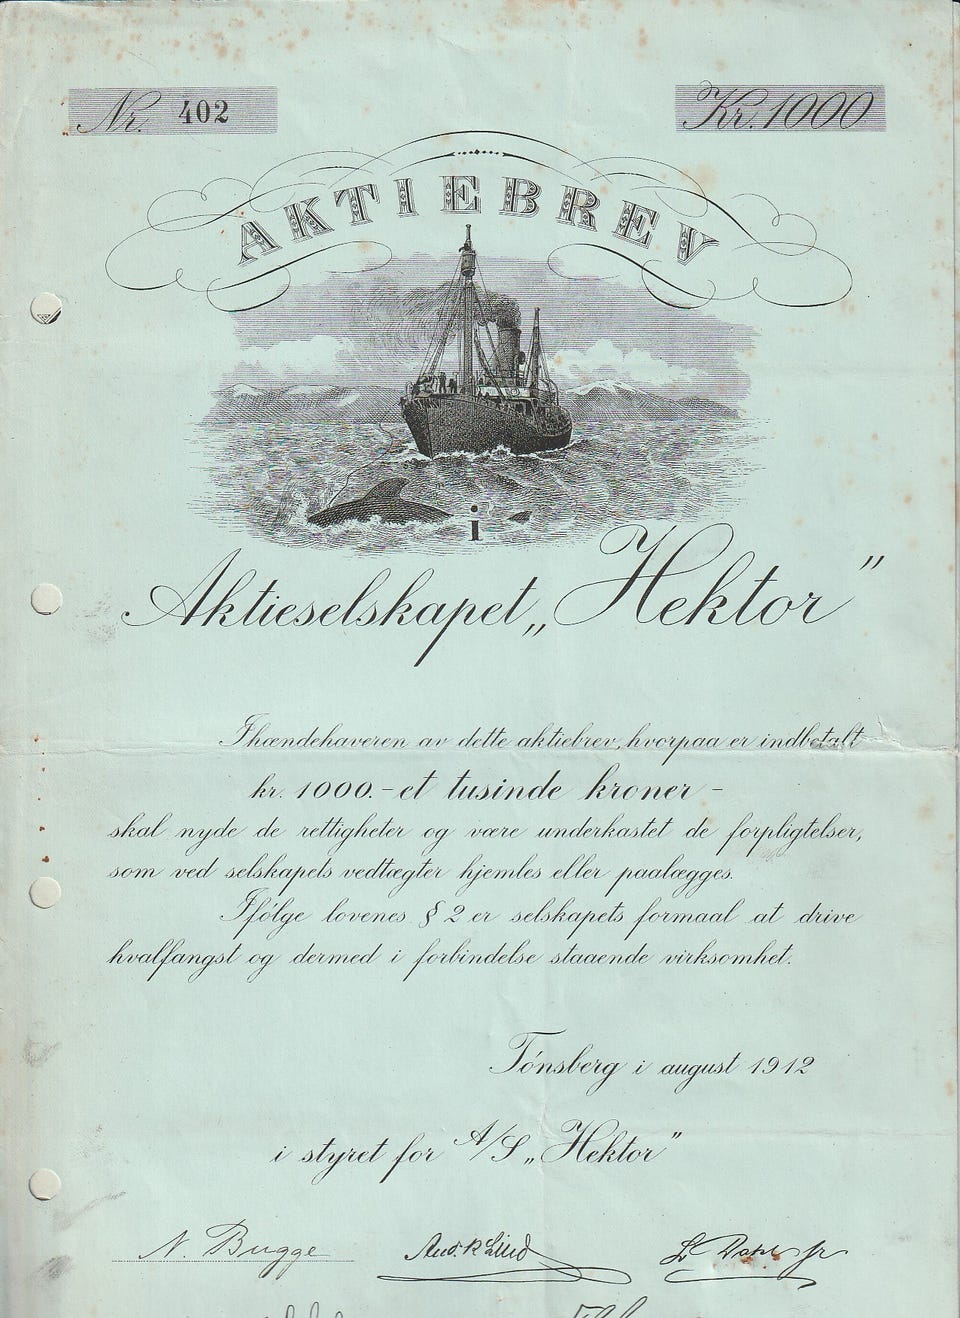 Nr. 402
Kr. 1000
AKTIEBREV
i
Aktieselskapet „Hektor”
Ihændehaveren av dette aktiebrev, hvorpaa er indbetalt
kr. 1000.- et tusinde kroner -
skal nyde de rettigheter og være underkastet de forpligtelser,
som ved selskapets vedtægter hjemles eller paalægges.
Ifølge lovenes § 2 er selskapets formaal at drive
hvalfangst og dermed i forbindelse staaende virksomhet.
Tønsberg i august 1912
i styret for A/S „Hektor”
N. Bugge
L. Dahl jr